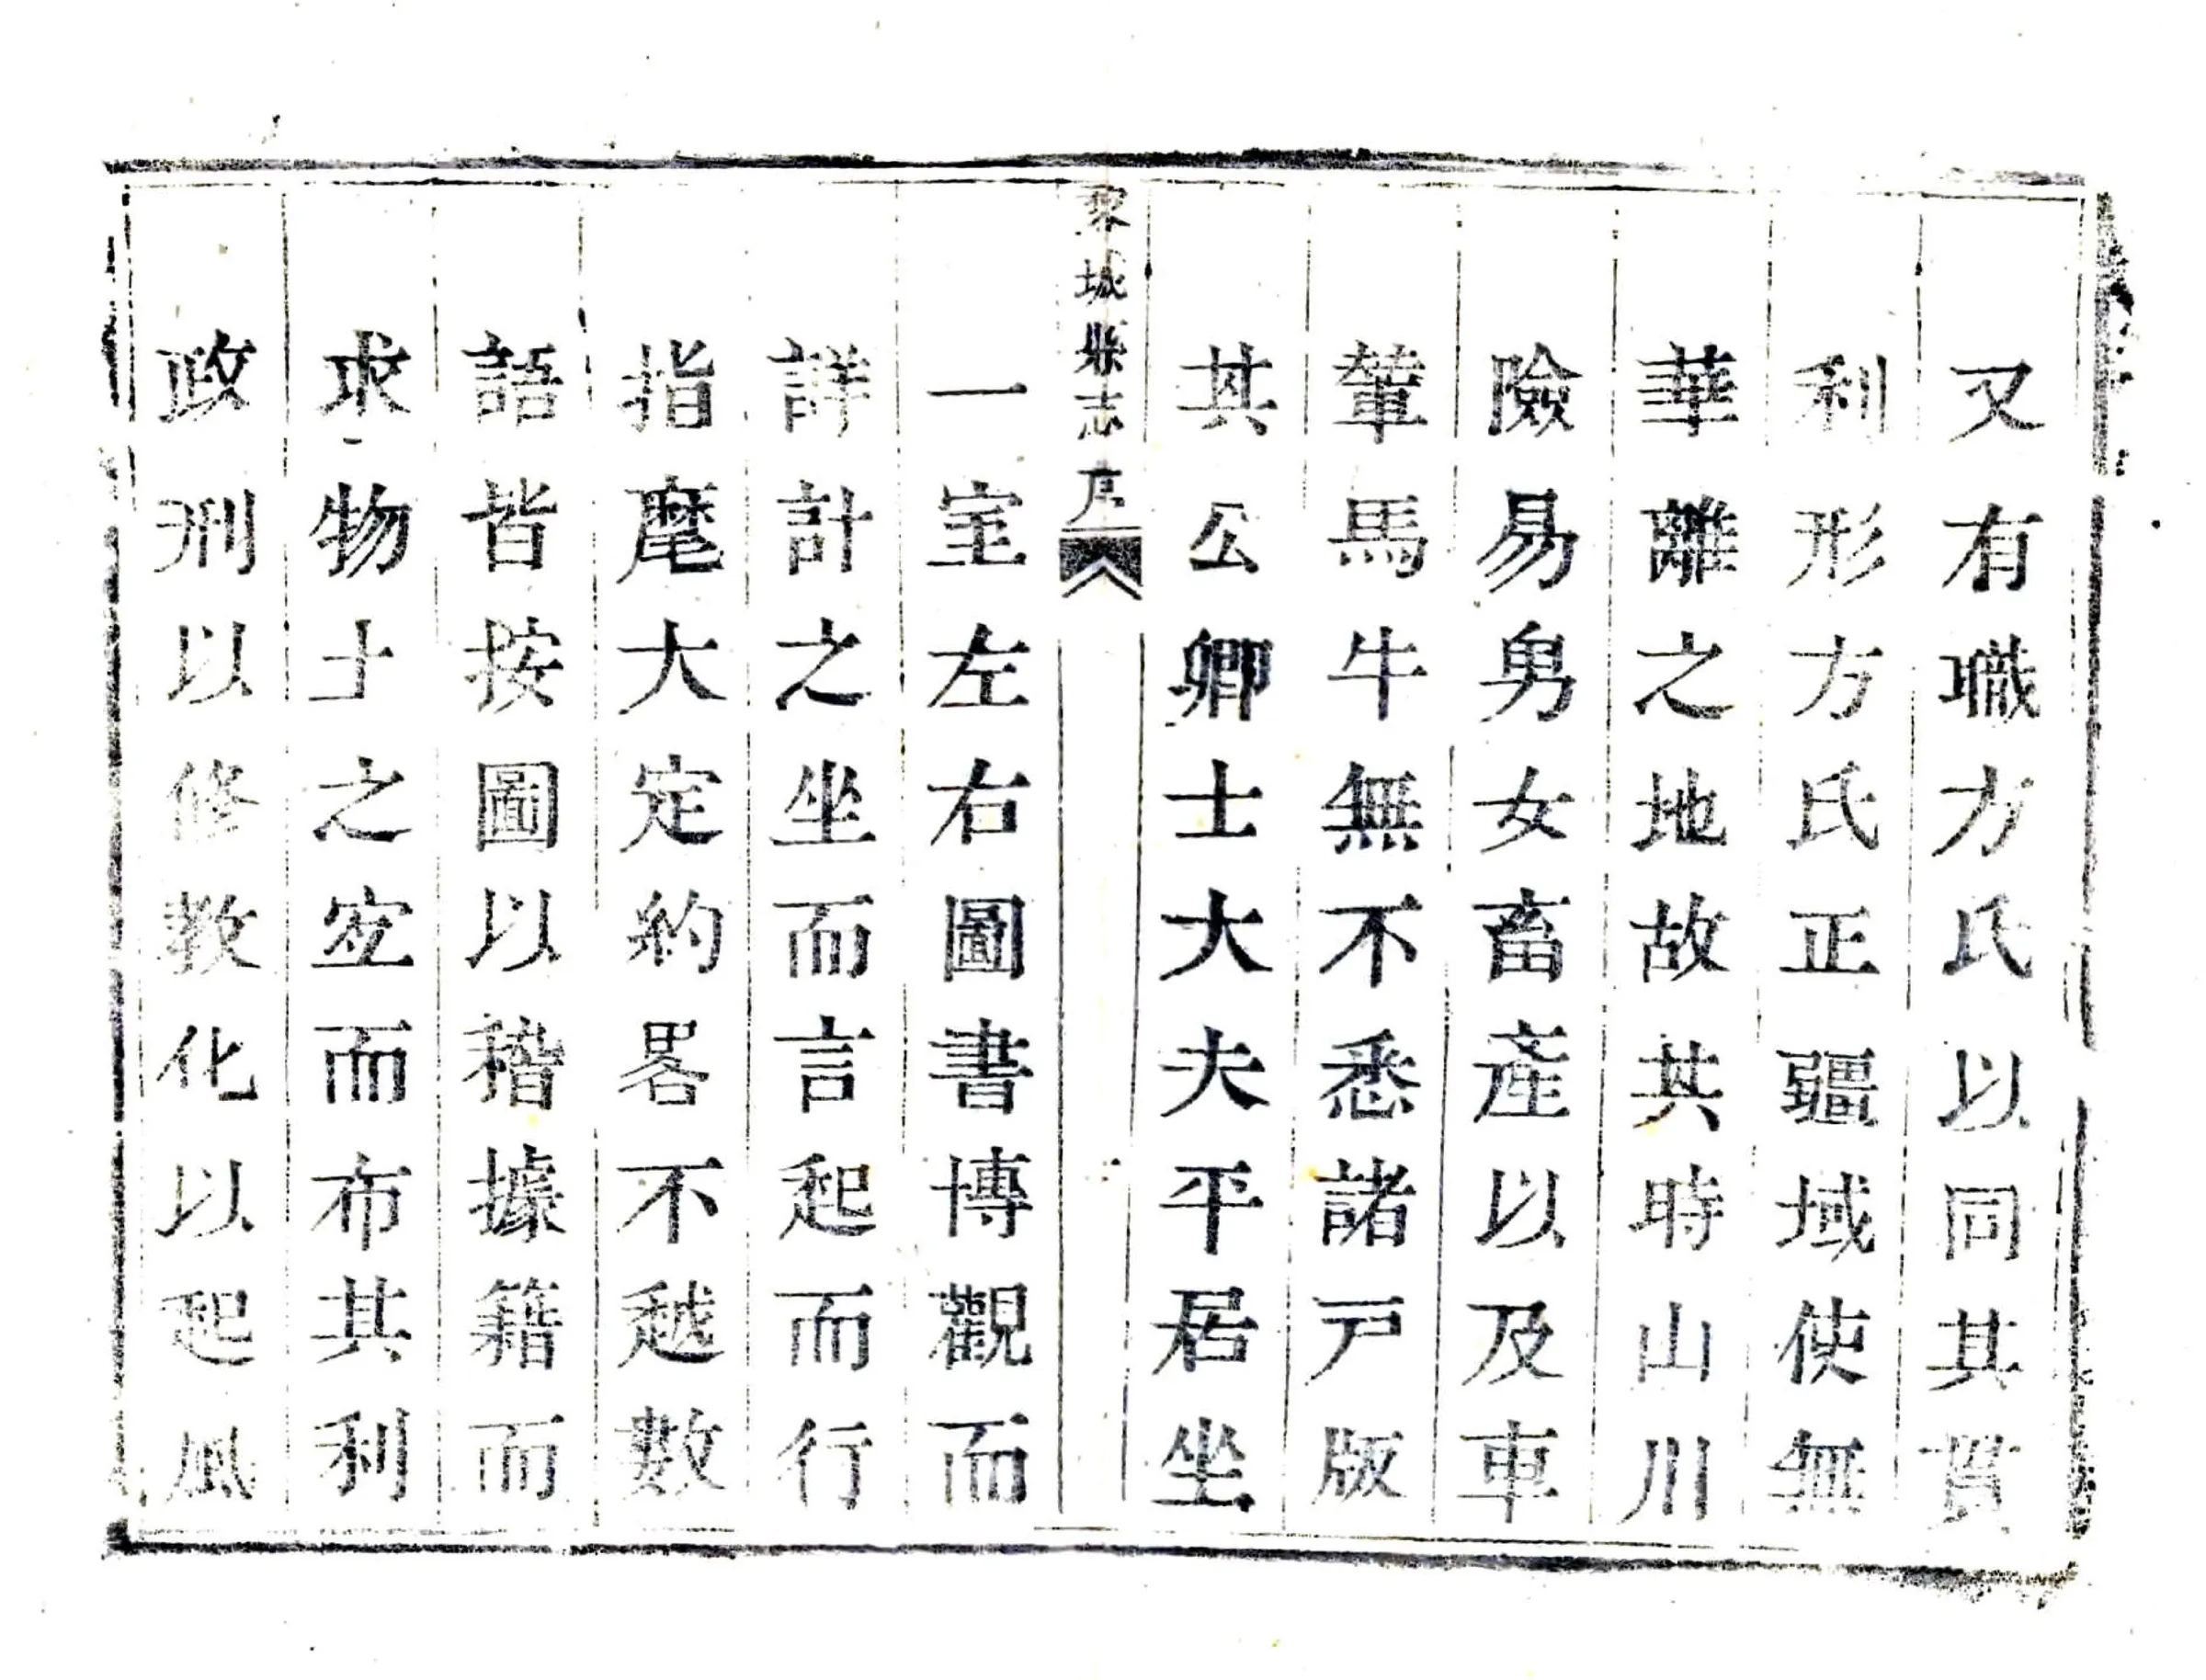 又有職方氏以同其貫
利形方氏正疆域使無
華離之地故其時山川
險易男女畜產以及車
輦馬牛無不悉諸戸版
其公卿士大夫平居坐
黎城縣志序
一室左右圖書博觀而
詳計之坐而言起而行
指麾大定約畧不越數
語皆按圖以稽據籍而
求物土之宐而布其利
政刑以修教化以起風